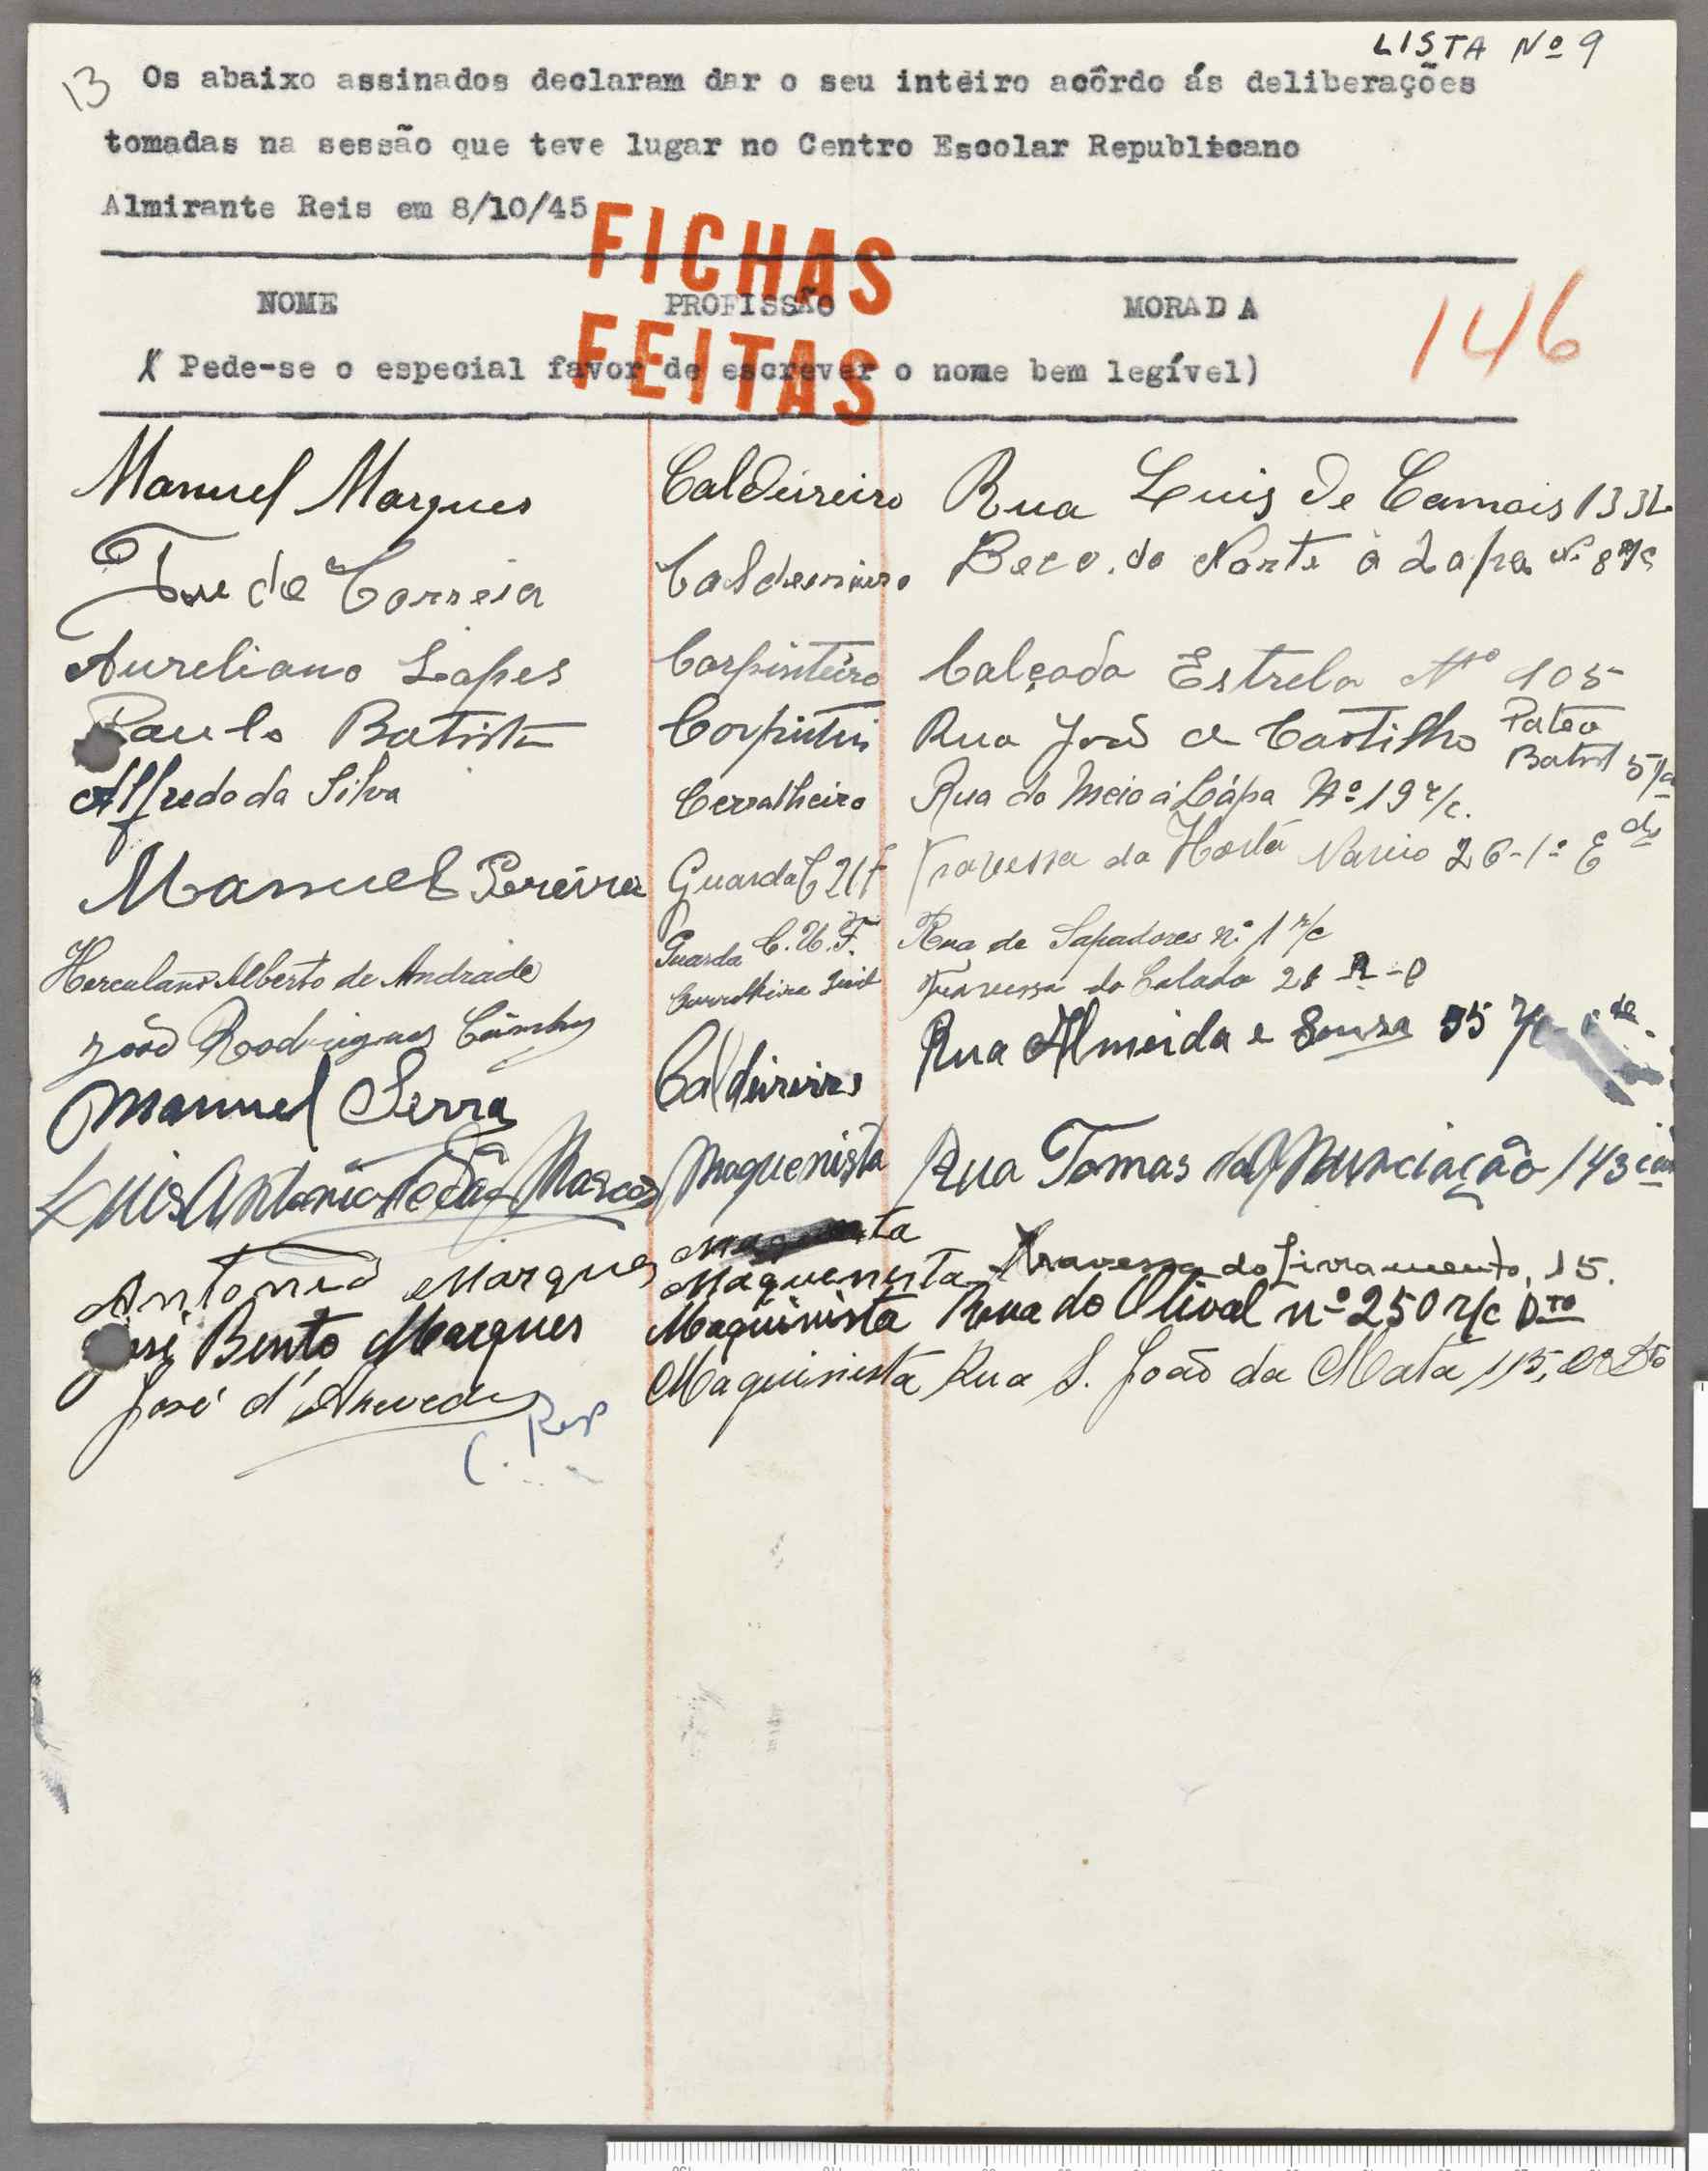 LISTA Nº 9
13 Os abaixo assinados declaram dar o seu inteiro acôrdo ás deliberações
tomadas na sessão que teve lugar no Centro Escolar Republicano
Almirante Reis em 8/10/45
FICHAS
FEITAS
NOME PROFISSÃO MORADA
146
Pede-se o especial favor de escrever o nome bem legível)
Manuel Marques Caldeireiro Rua Luis de Camois 133
de Correia Beco do Norte á Lapa Nº 8 r/c
Aureliano Lopes Carpinteiro Calçada Estrela Nº 105
Paulo Batista Rua João de Castilho Pateo
Alfredo da Silva Cerralheiro Rua do Meio á Lápa Nº 19 r/c.
Manuel Pereira Guarda CUF Travessa da Horta Navio 26-1º E
Herculano Alberto de Andrade Guarda C.U.F. Rua de Sapadores nº 1 r/c
João Rodrigues Travessa do 28 R-C
Manuel Serra Caldeireiro Rua Almeida e Sousa 35 r/c
Luis Antonio Marcos Maquenista Rua Tomas da Anunciação 143
Antonio Marques Maquenista Travessa do Livramento, 15.
José Bento Marques Maquinista Rua do Olival nº 250 r/c Dto
José d'Azevedo Maquinista Rua S. João da Mata 115,